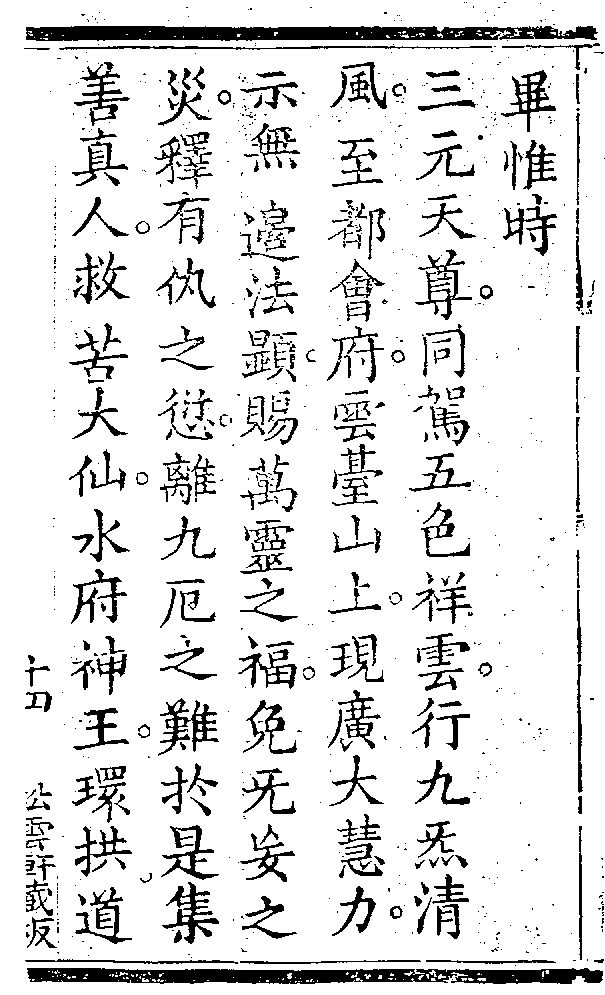 畢惟時
三元天尊。同駕五色祥雲。行九炁清
風。至都會府。雲臺山上。現廣大慧力。
示無邉法顯。賜萬靈之福。免旡妄之
災。釋有仇之愆。離九厄之難於是集
善真人。救苦大仙。水府神王。環拱道